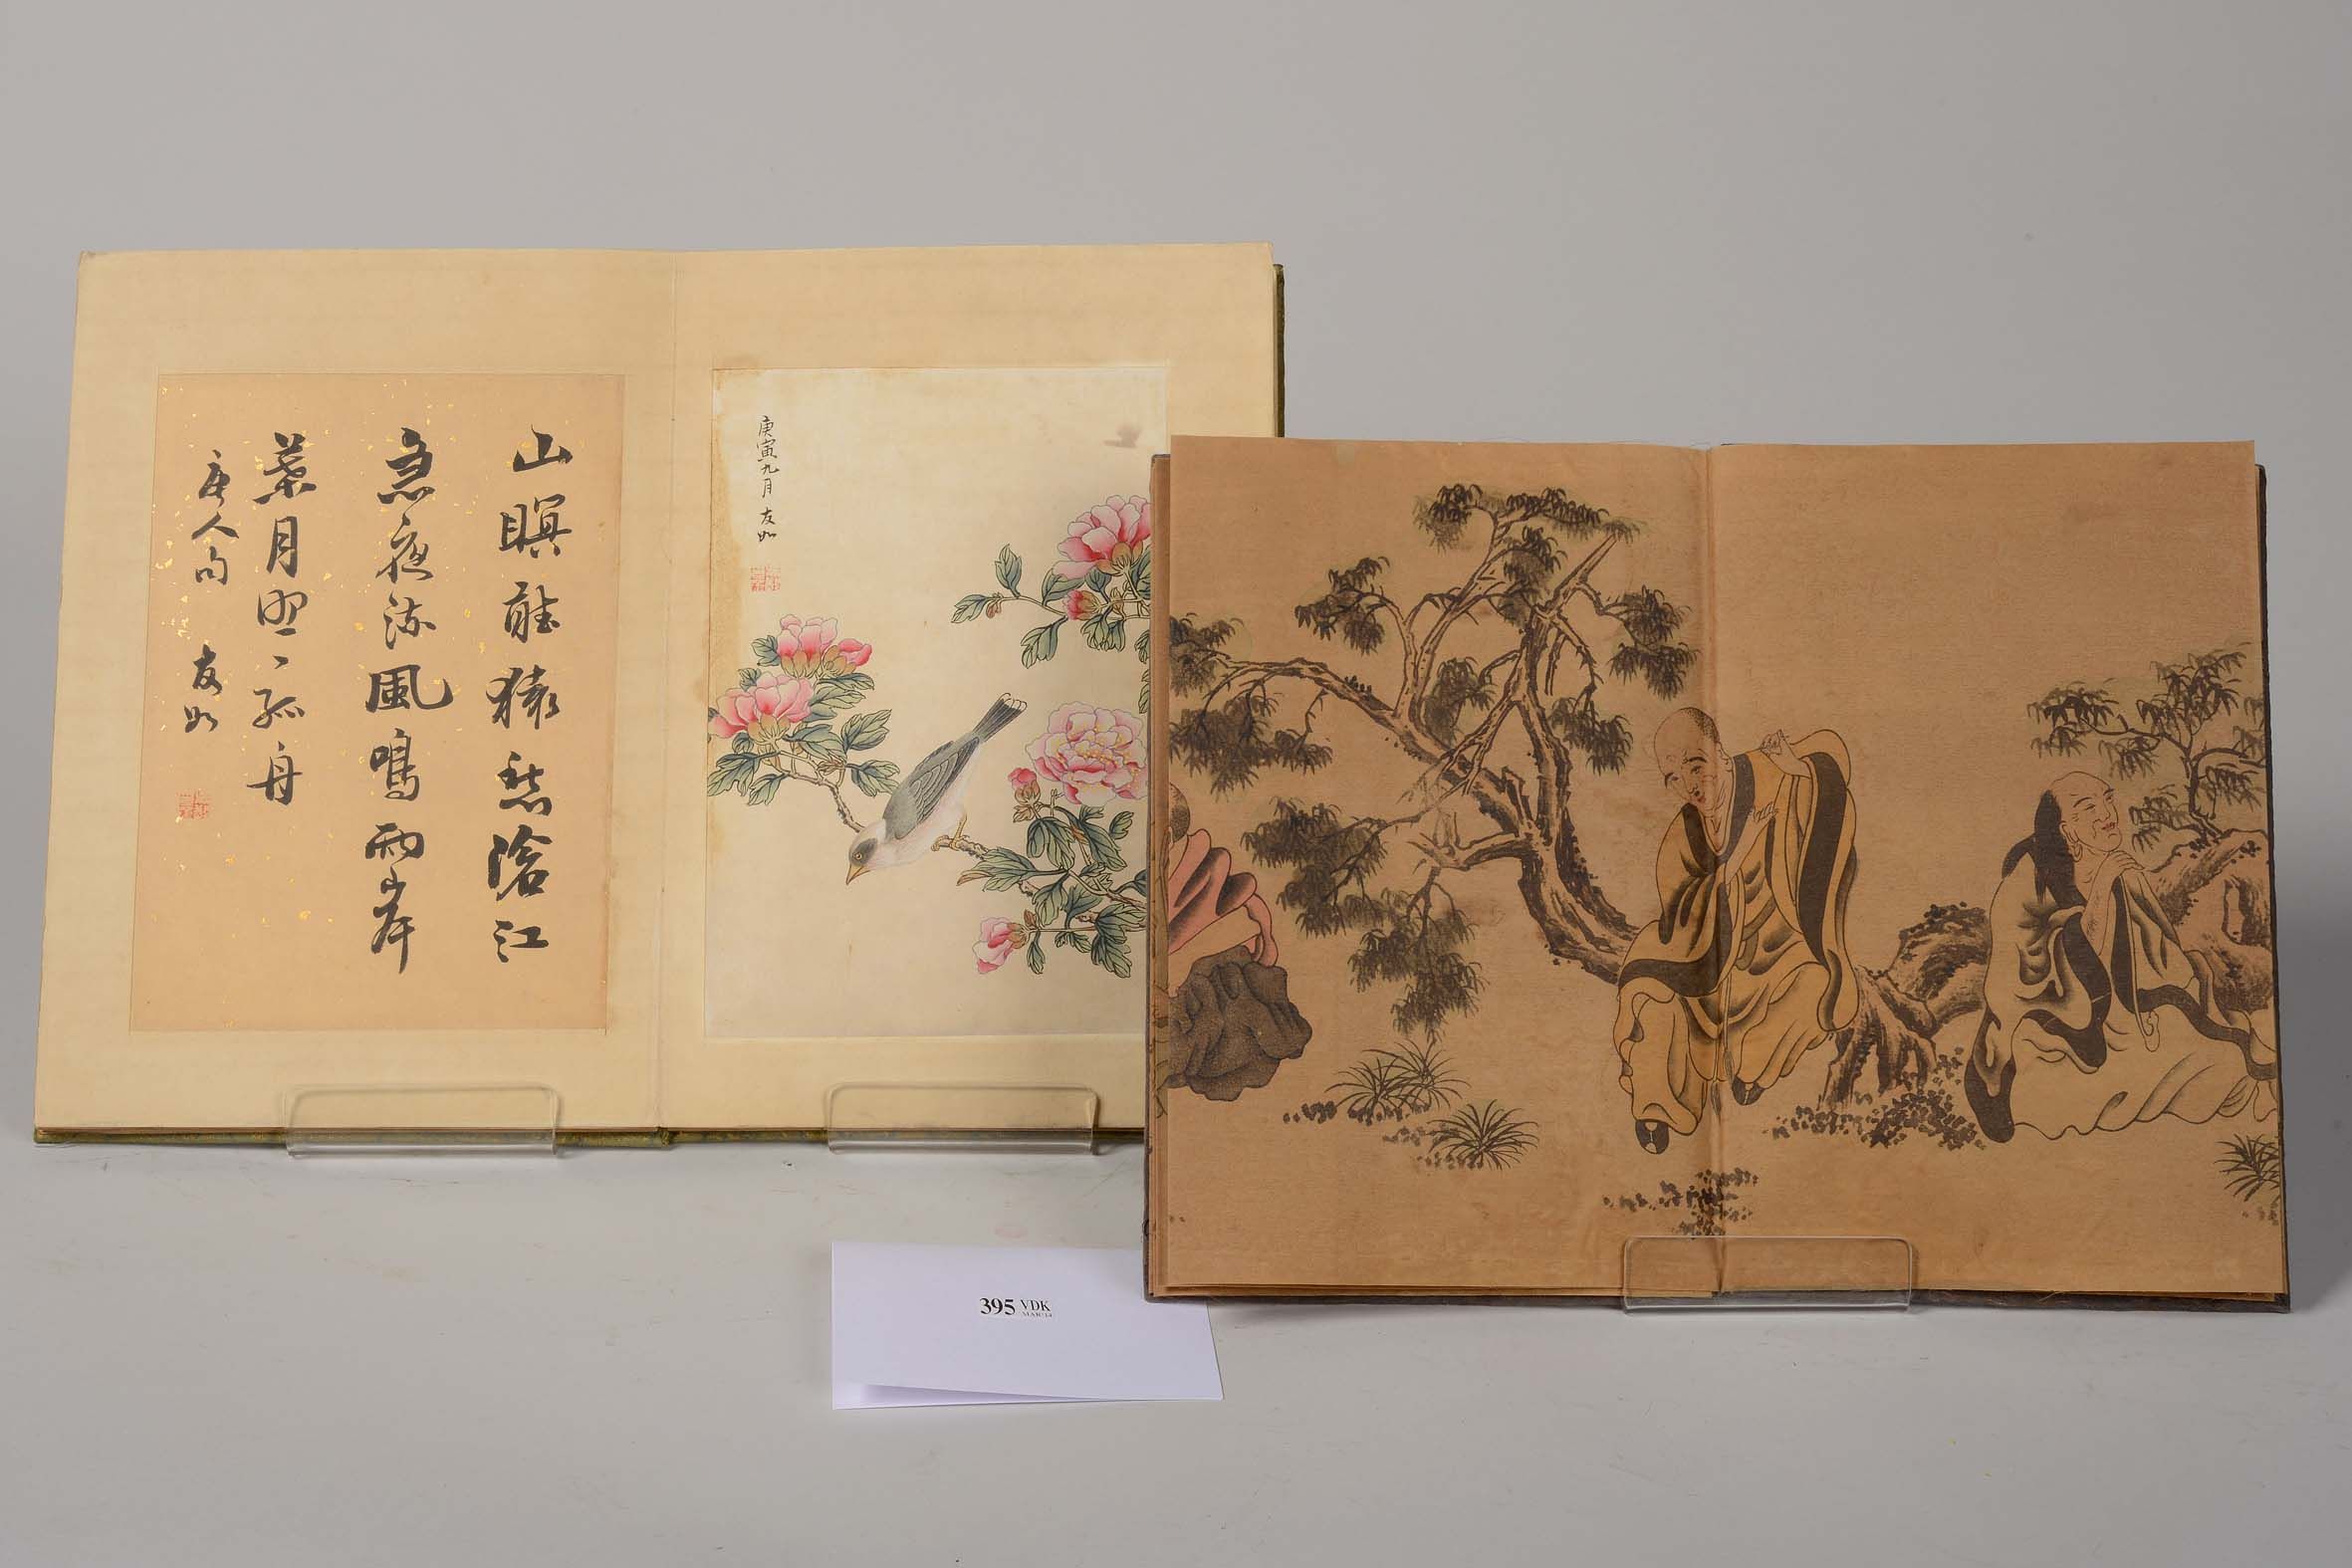 山暝聽猿愁滄江
急夜流風鳴兩岸
葉月照一孤舟
唐人句 友如
庚寅九月 友如
395 VDK
MAR/14